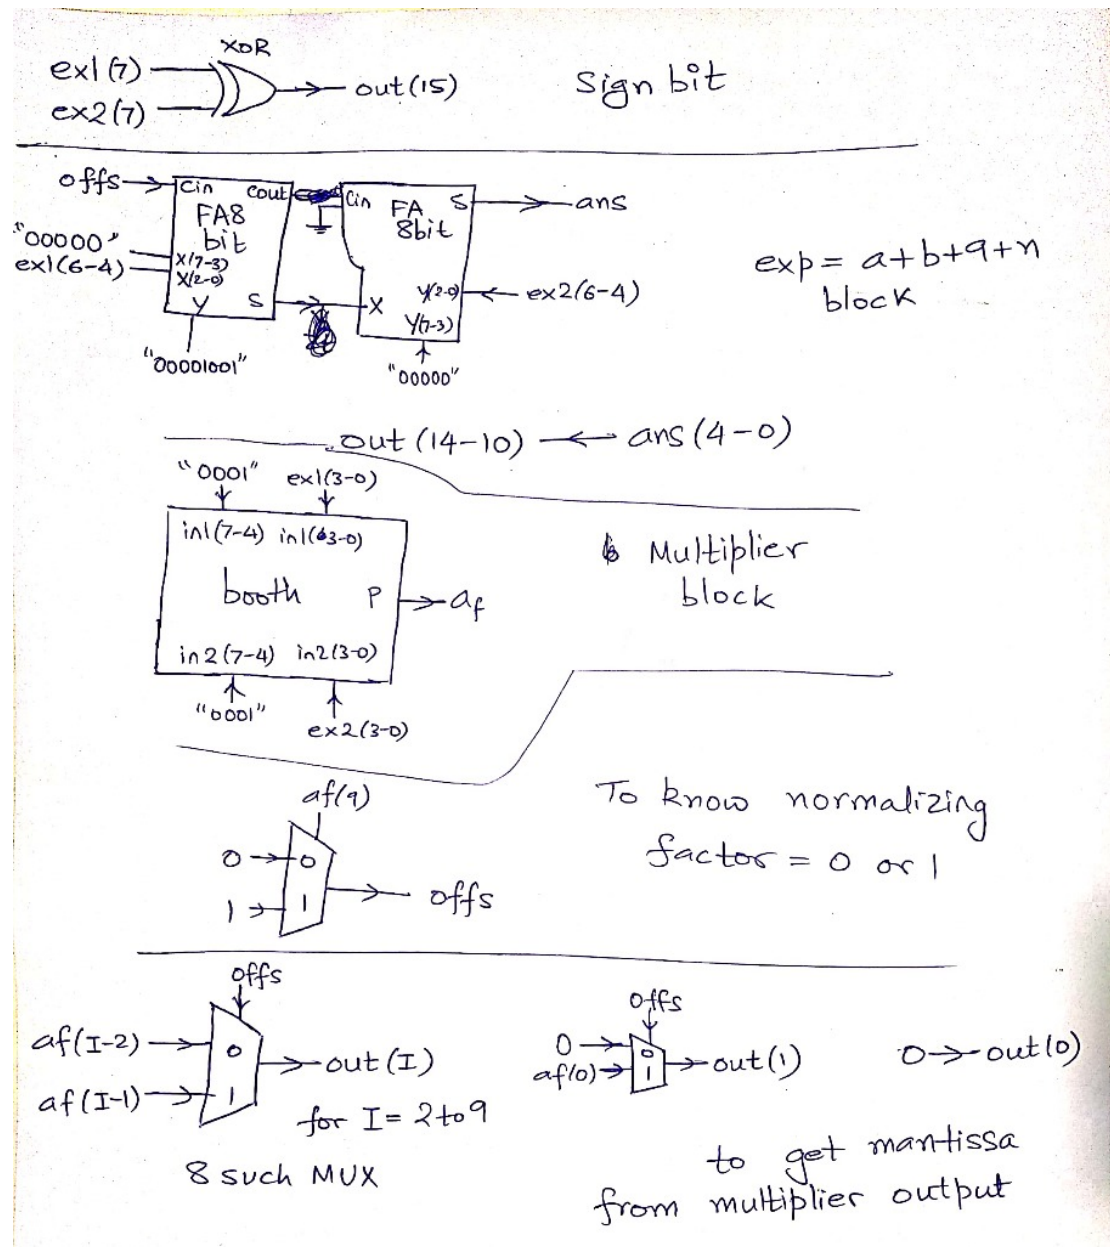 XOR
ex1(7)
ex2(7)
out(15)
Sign bit
offs
Cin Cout
FA8
bit
X(7-3)
X(2-0)
Y S
"00000"
ex1(6-4)
"00001001"
Cin FA S
8bit
X Y(2-0)
Y(7-3)
ans
ex2(6-4)
"00000"
exp = a+b+9+n
block
out (14-10) ans (4-0)
"0001" ex1(3-0)
in1(7-4) in1(3-0)
booth P af
in2(7-4) in2(3-0)
"0001"
ex2(3-0)
Multiplier
block
af(9)
0 0
1 1
offs
To know normalizing
factor = 0 or 1
offs
af(I-2) 0
af(I-1) 1
out(I)
for I = 2 to 9
8 such MUX
offs
0 0
af(0) 1
out(1)
0 out(0)
to get mantissa
from multiplier output